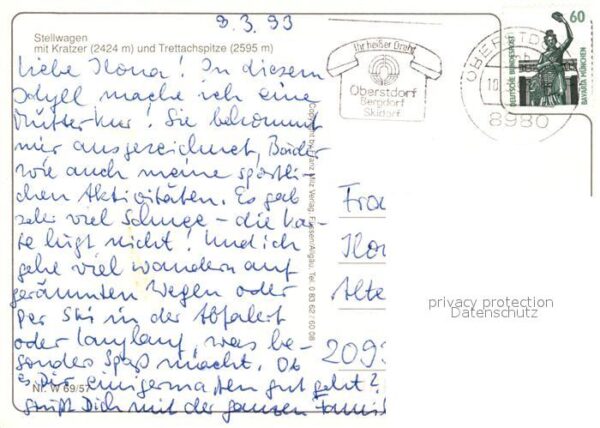 8.3.93
Stellwagen
mit Kratzer (2424 m) und Trettachspitze (2595 m)
Liebe Ilona! In diesem
Idyll mache ich eine
Mütterkur! Sie bekommt
mir ausgezeichnet, Bäder
wie auch meine sportli-
chen Aktivitäten. Es gab
sehr viel Schnee - die Kar-
te lügt nicht! Und ich
gehe viel wandern auf
geräumten Wegen oder
per Ski in der Abfahrt
oder Langlauf, was be-
sonders Spaß macht. Ob
es Dir einigermaßen gut geht?
Nr. W 69/57
grüßt Dich mit der ganzen Famili
Copyright by Franz Milz Verlag, Füssen/Allgäu, Tel. 0 83 62 / 60 08
Ihr heißer Draht
Oberstdorf
Bergdorf
Skidorf
OBERSTDO
10.
8980
60
DEUTSCHE BUNDESPOST
BAVARIA MÜNCHEN
Frau
Ilo
Alte
209
privacy protection
Datenschutz